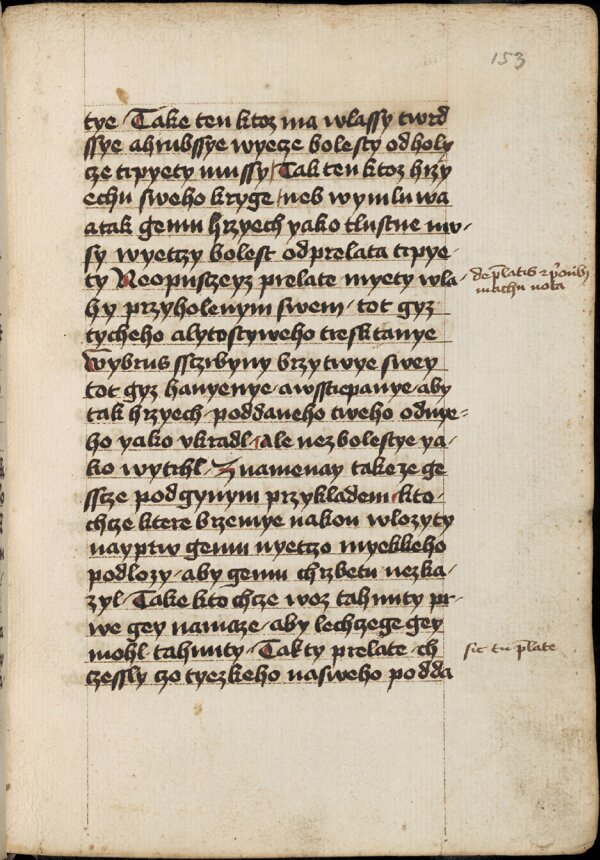 153
tye / Take ten ktoz ma wlassy twrd
ssye ahrubssye wyecze bolesty od holy
cze trpyety mussy / Tak ten ktoz hrzy
echu sweho kryge / neb wymluwa
a tak gemu hrzyech yako tlustne mu-
sy wyetczy bolest od prelata trpye-
ty Neopusczeyz prelate myety wla-
hy przyholenym swem / tot gyz
tycheho alytostyweho tresktanye
Wybrus sstrbyny brzytwye swey
tot gyz hanyenye / awsstiepanye / aby
tak hrzyech / poddaneho tweho odnye-
ho yako vkradl / Ale nez bolestye ya-
ko wytrhl / Znamenay take ze ge
sstze pod gynym przykladem / kto-
chcze ktere brzemye nakon wlozyty
nayprw gemu nyetczo myekkeho
podlozy / aby gemu chrzbetu nezka-
zyl / Take kto chcze woz tahnuty pr-
we gey namaze / aby lechczege gey
mohl tahnuty / Tak ty prelate / ch
czessly czo tyezkeho nasweho podda
nota
sic tu prelate